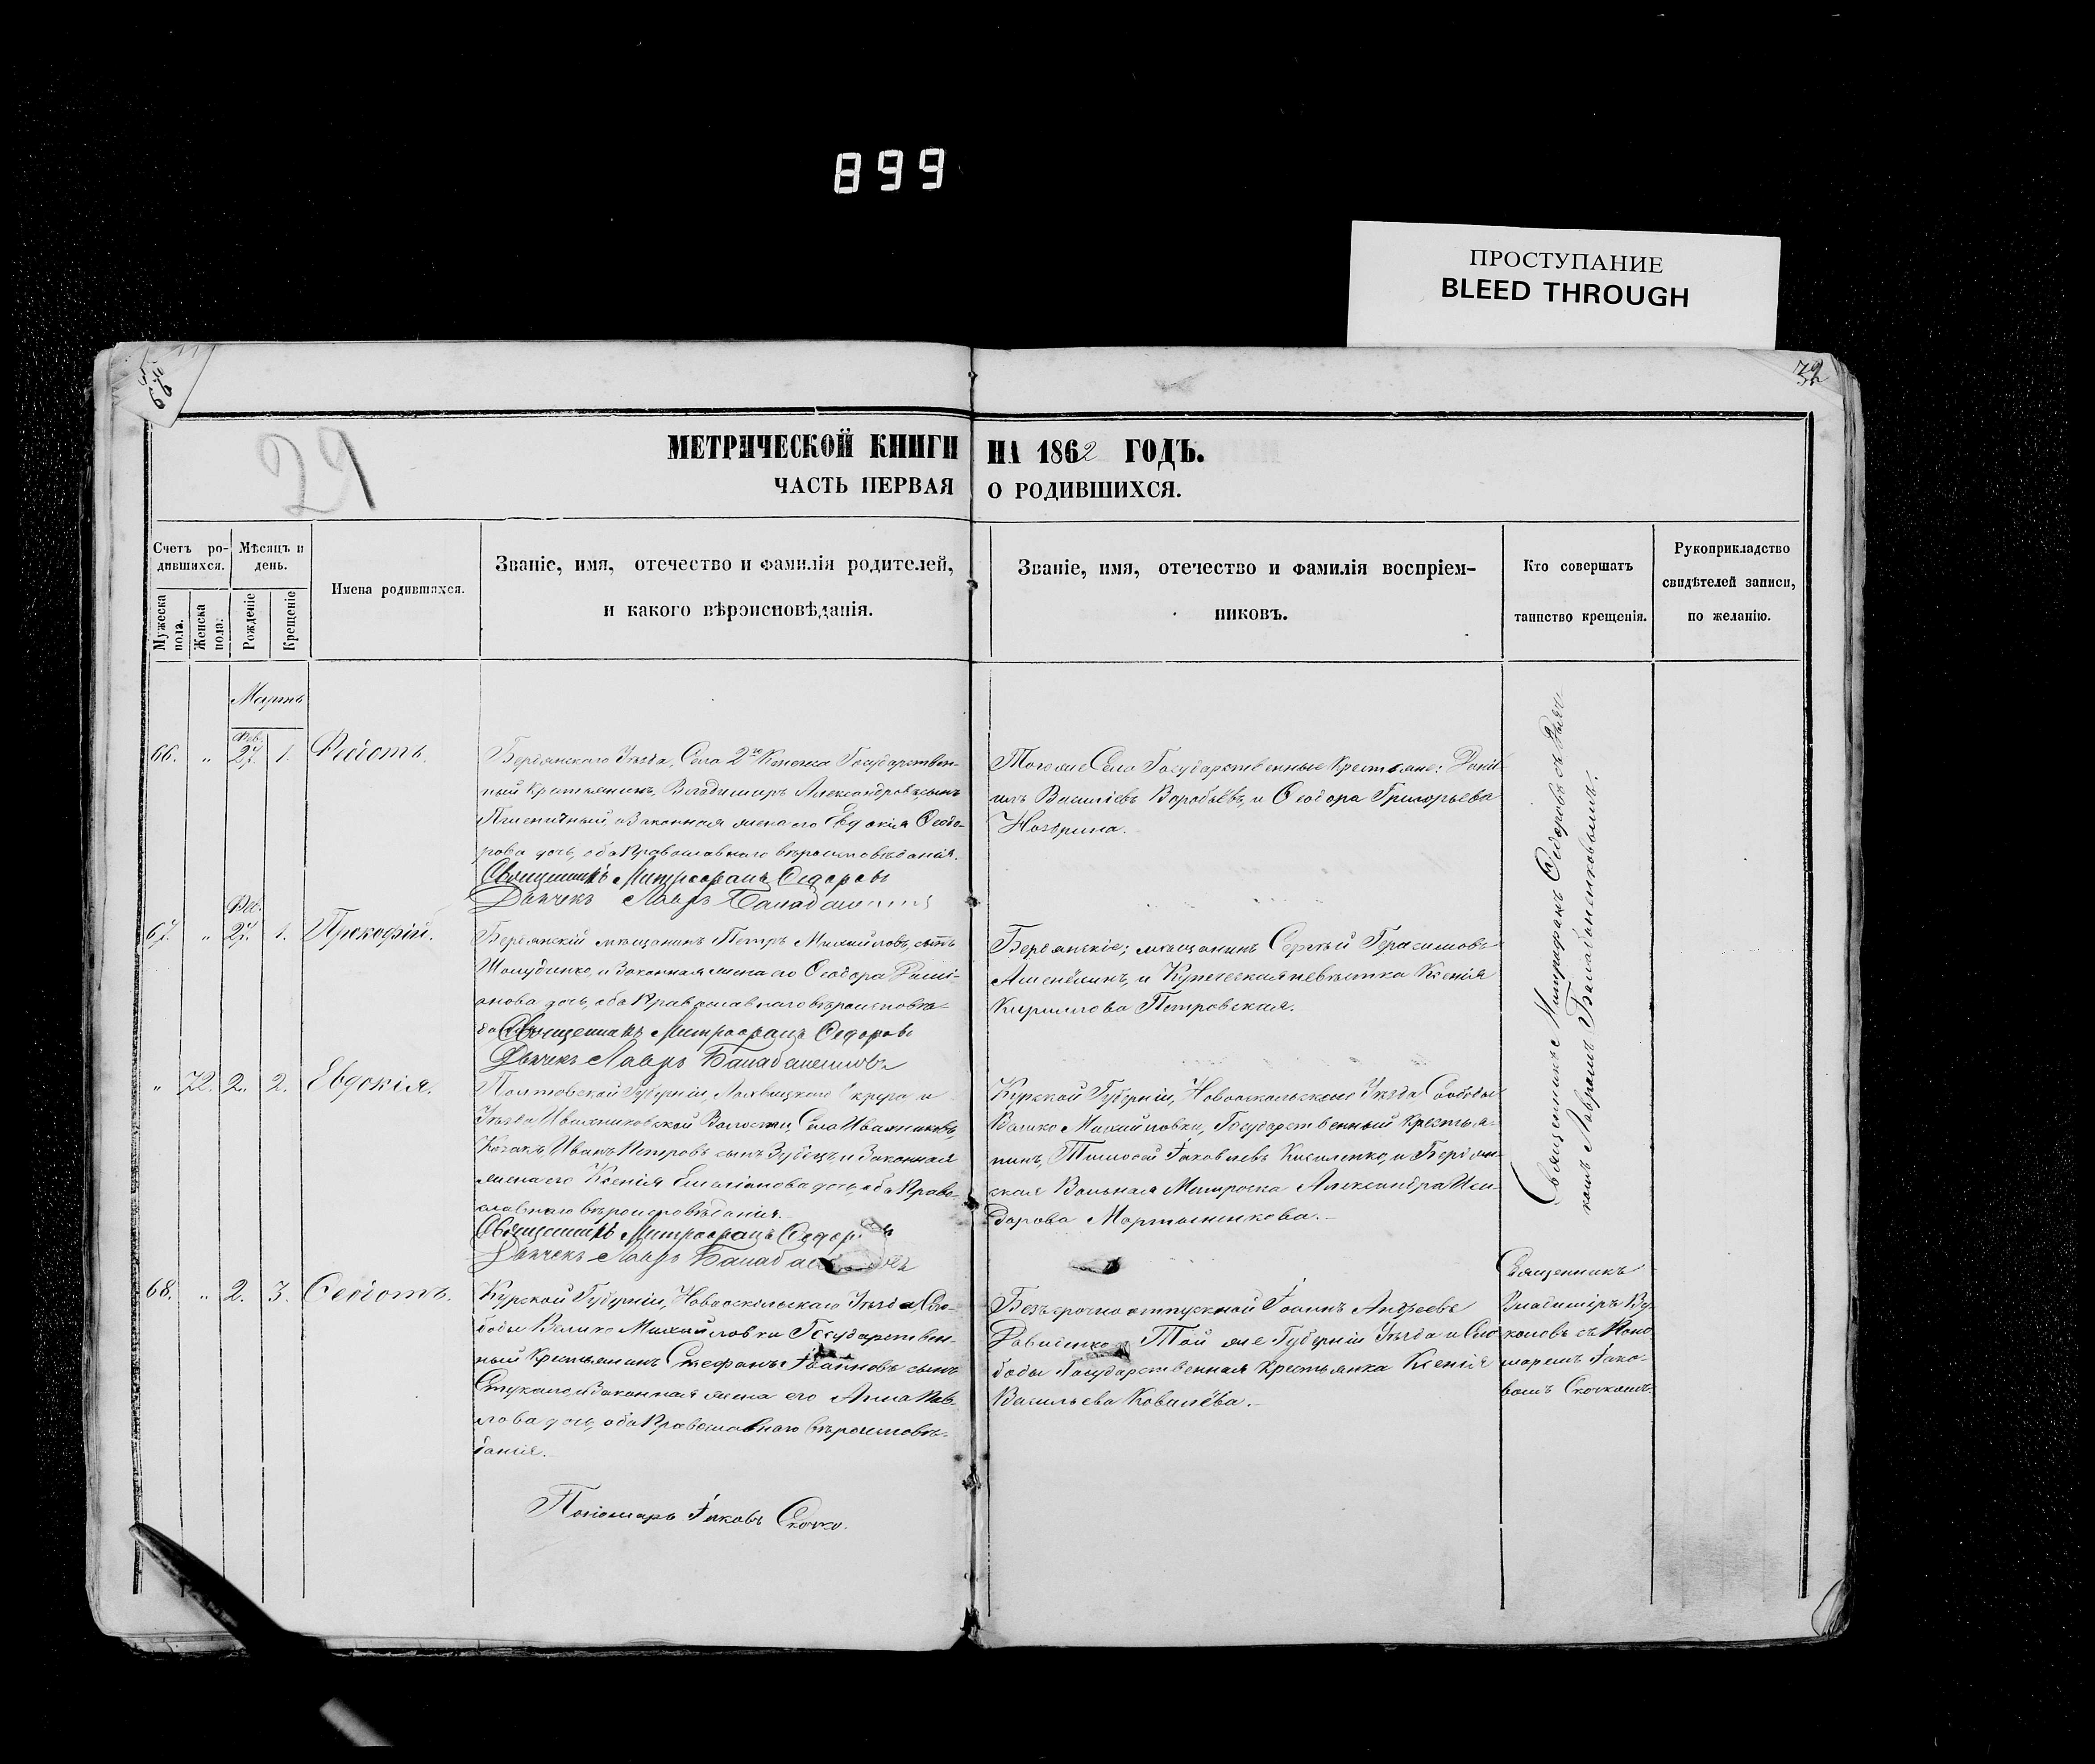 899
ПРОСТУПАНИЕ
BLEED THROUGH
32
29
МЕТРИЧЕСКОЙ КНИГИ НА 1862 ГОДЪ.
ЧАСТЬ ПЕРВАЯ О РОДИВШИХСЯ.
Счетъ ро-
дившихся.
Мѣсяцъ и
день.
Мужеска
пола.
Женска
пола.
Рожденіе
Крещеніе
Имена родившихся.
Званіе, имя, отечество и фамилія родителей,
и какого вѣроисповѣданія.
Званіе, имя, отечество и фамилія воспріем-
никовъ.
Кто совершатъ
таинство крещенія.
Рукоприкладство
свидѣтелей записи,
по желанію.
Мартъ
66. " Фев. 27. 1.
Бердянскаго Уѣзда, Села 2го Государствен-
ный Крестьянинъ, Владимиръ Александровъ сынъ
Пшеничный, и Законная жена его Евдокія Ѳеодо-
рова дочь, оба Православнаго вѣроисповѣданія.
Священникъ Митрофанъ Ѳедоровъ
Дьячекъ Лавръ
Тогоже Села Государственные Крестьяне: Дани-
илъ Васильевъ Воробьёвъ, и Ѳеодора Григорьева
67. " Фев. 27. 1. Прокофій.
Бердянскій мѣщанинъ Петръ Михайловъ сынъ
и Законная жена его Ѳеодора
дочь, оба Православнаго вѣроисповѣ-
Священникъ Митрофанъ Ѳедоровъ
Дьячекъ Лавръ Балабаненковъ
Бердянскіе; мѣщанинъ Сергѣй Герасимовъ
и Купеческая невѣстка Ксенія
Кирилова Петровская.
" 72. 2. 2. Евдокія.
Полтовской Губерніи, Лохвицкаго Округа и
Уѣзда Ивахниковской Волости, Села Ивахниковъ,
Козакъ Иванъ Петровъ сынъ Зубецъ, и Законная
жена его Ксенія Емельянова дочь, оба Право-
славнаго вѣроисповѣданія.
Священникъ Митрофанъ Ѳедоровъ
Дьячекъ Лавръ
Курской Губерніи, Новооскольскаго Уѣзда Слободы
Велико Михайловки, Государственный Крестья-
нинъ, Тимофей Іаковлевъ Кисиленко, и Бердян-
ская Вольная Матроска Александра Иси-
дорова Мартыненкова.
Священникъ Митрофанъ Ѳедоровъ съ Дьяч-
комъ Лавромъ Балабаненковымъ.
68. " 2. 3. Ѳеодотъ.
Курской Губерніи, Новооскольскаго Уѣзда Сло-
боды Велико Михайловки Государствен-
ный Крестьянинъ Стефанъ Іоанновъ сынъ
и Законная жена его Анна Пав-
лова дочь, оба Православнаго вѣроисповѣ-
данія.
Безсрочно отпускной Іоаннъ Андреевъ
Давиденко и Той же Губерніи Уѣзда и Сло-
боды Государственная Крестьянка Ксенія
Васильева Ковалёва.
Священникъ
Владиміръ
съ Поно-
маремъ Іако-
вомъ Скочкомъ.
Пономарь Іаковъ Скочко.